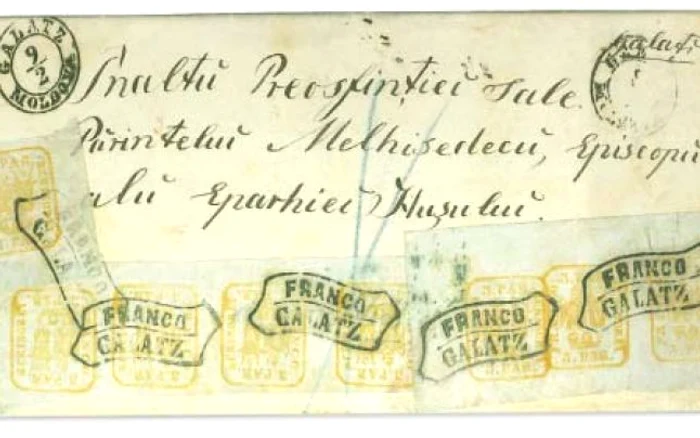 GALATZ
9/2
MOLDOVA
Galați
Înaltu Preosfinției Sale.
Părintelui Melhisedecŭ, Episcopŭ
alu Eparhiei Hușului.
FRANCO
GALATZ
FRANCO
GALATZ
FRANCO
GALATZ
FRANCO
GALATZ
FRANCO
2 PAR